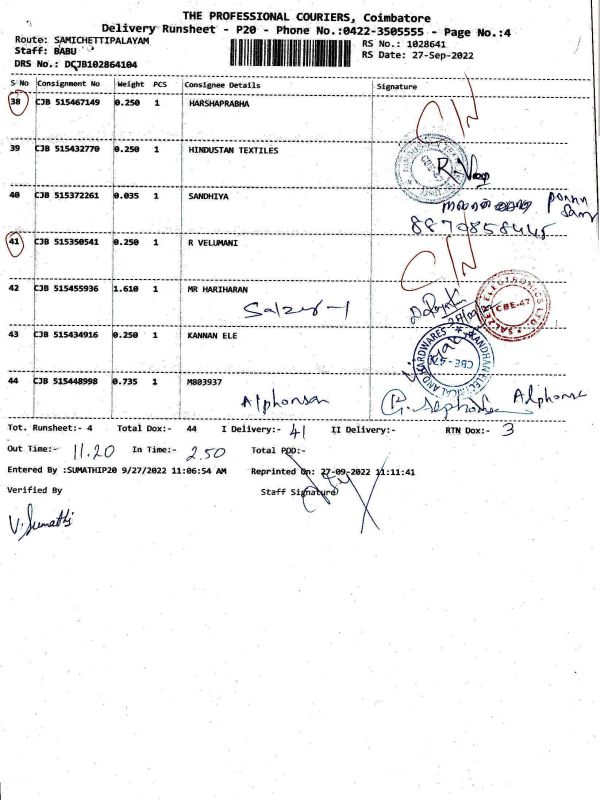 THE PROFESSIONAL COURIERS, Coimbatore
Delivery Runsheet - P20 - Phone No.:0422-3505555 - Page No.:4
Route: SAMICHETTIPALAYAM RS No.: 1028641
Staff: BABU RS Date: 27-Sep-2022
DRS No.: DCJB102864104
S No Consignment No Weight PCS Consignee Details Signature
38 CJB 515467149 0.250 1 HARSHAPRABHA
39 CJB 515432770 0.250 1 HINDUSTAN TEXTILES
40 CJB 515372261 0.035 1 SANDHIYA
8870858445
41 CJB 515350541 0.250 1 R VELUMANI
42 CJB 515455936 1.610 1 MR HARIHARAN
Salzer-1
SALZER ELECTRONICS LTD
CBE-47
43 CJB 515434916 0.250 1 KANNAN ELE
KANDHAN ELECTRICAL AND HARDWARES
44 CJB 515448998 0.735 1 M803937
Alphonsa Alphonsa
Tot. Runsheet:- 4 Total Dox:- 44 I Delivery:- 41 II Delivery:- RTN Dox:- 3
Out Time:- 11.20 In Time:- 2.50 Total POD:-
Entered By :SUMATHIP20 9/27/2022 11:06:54 AM Reprinted On: 27-09-2022 11:11:41
Verified By Staff Signature
V. Sumathi